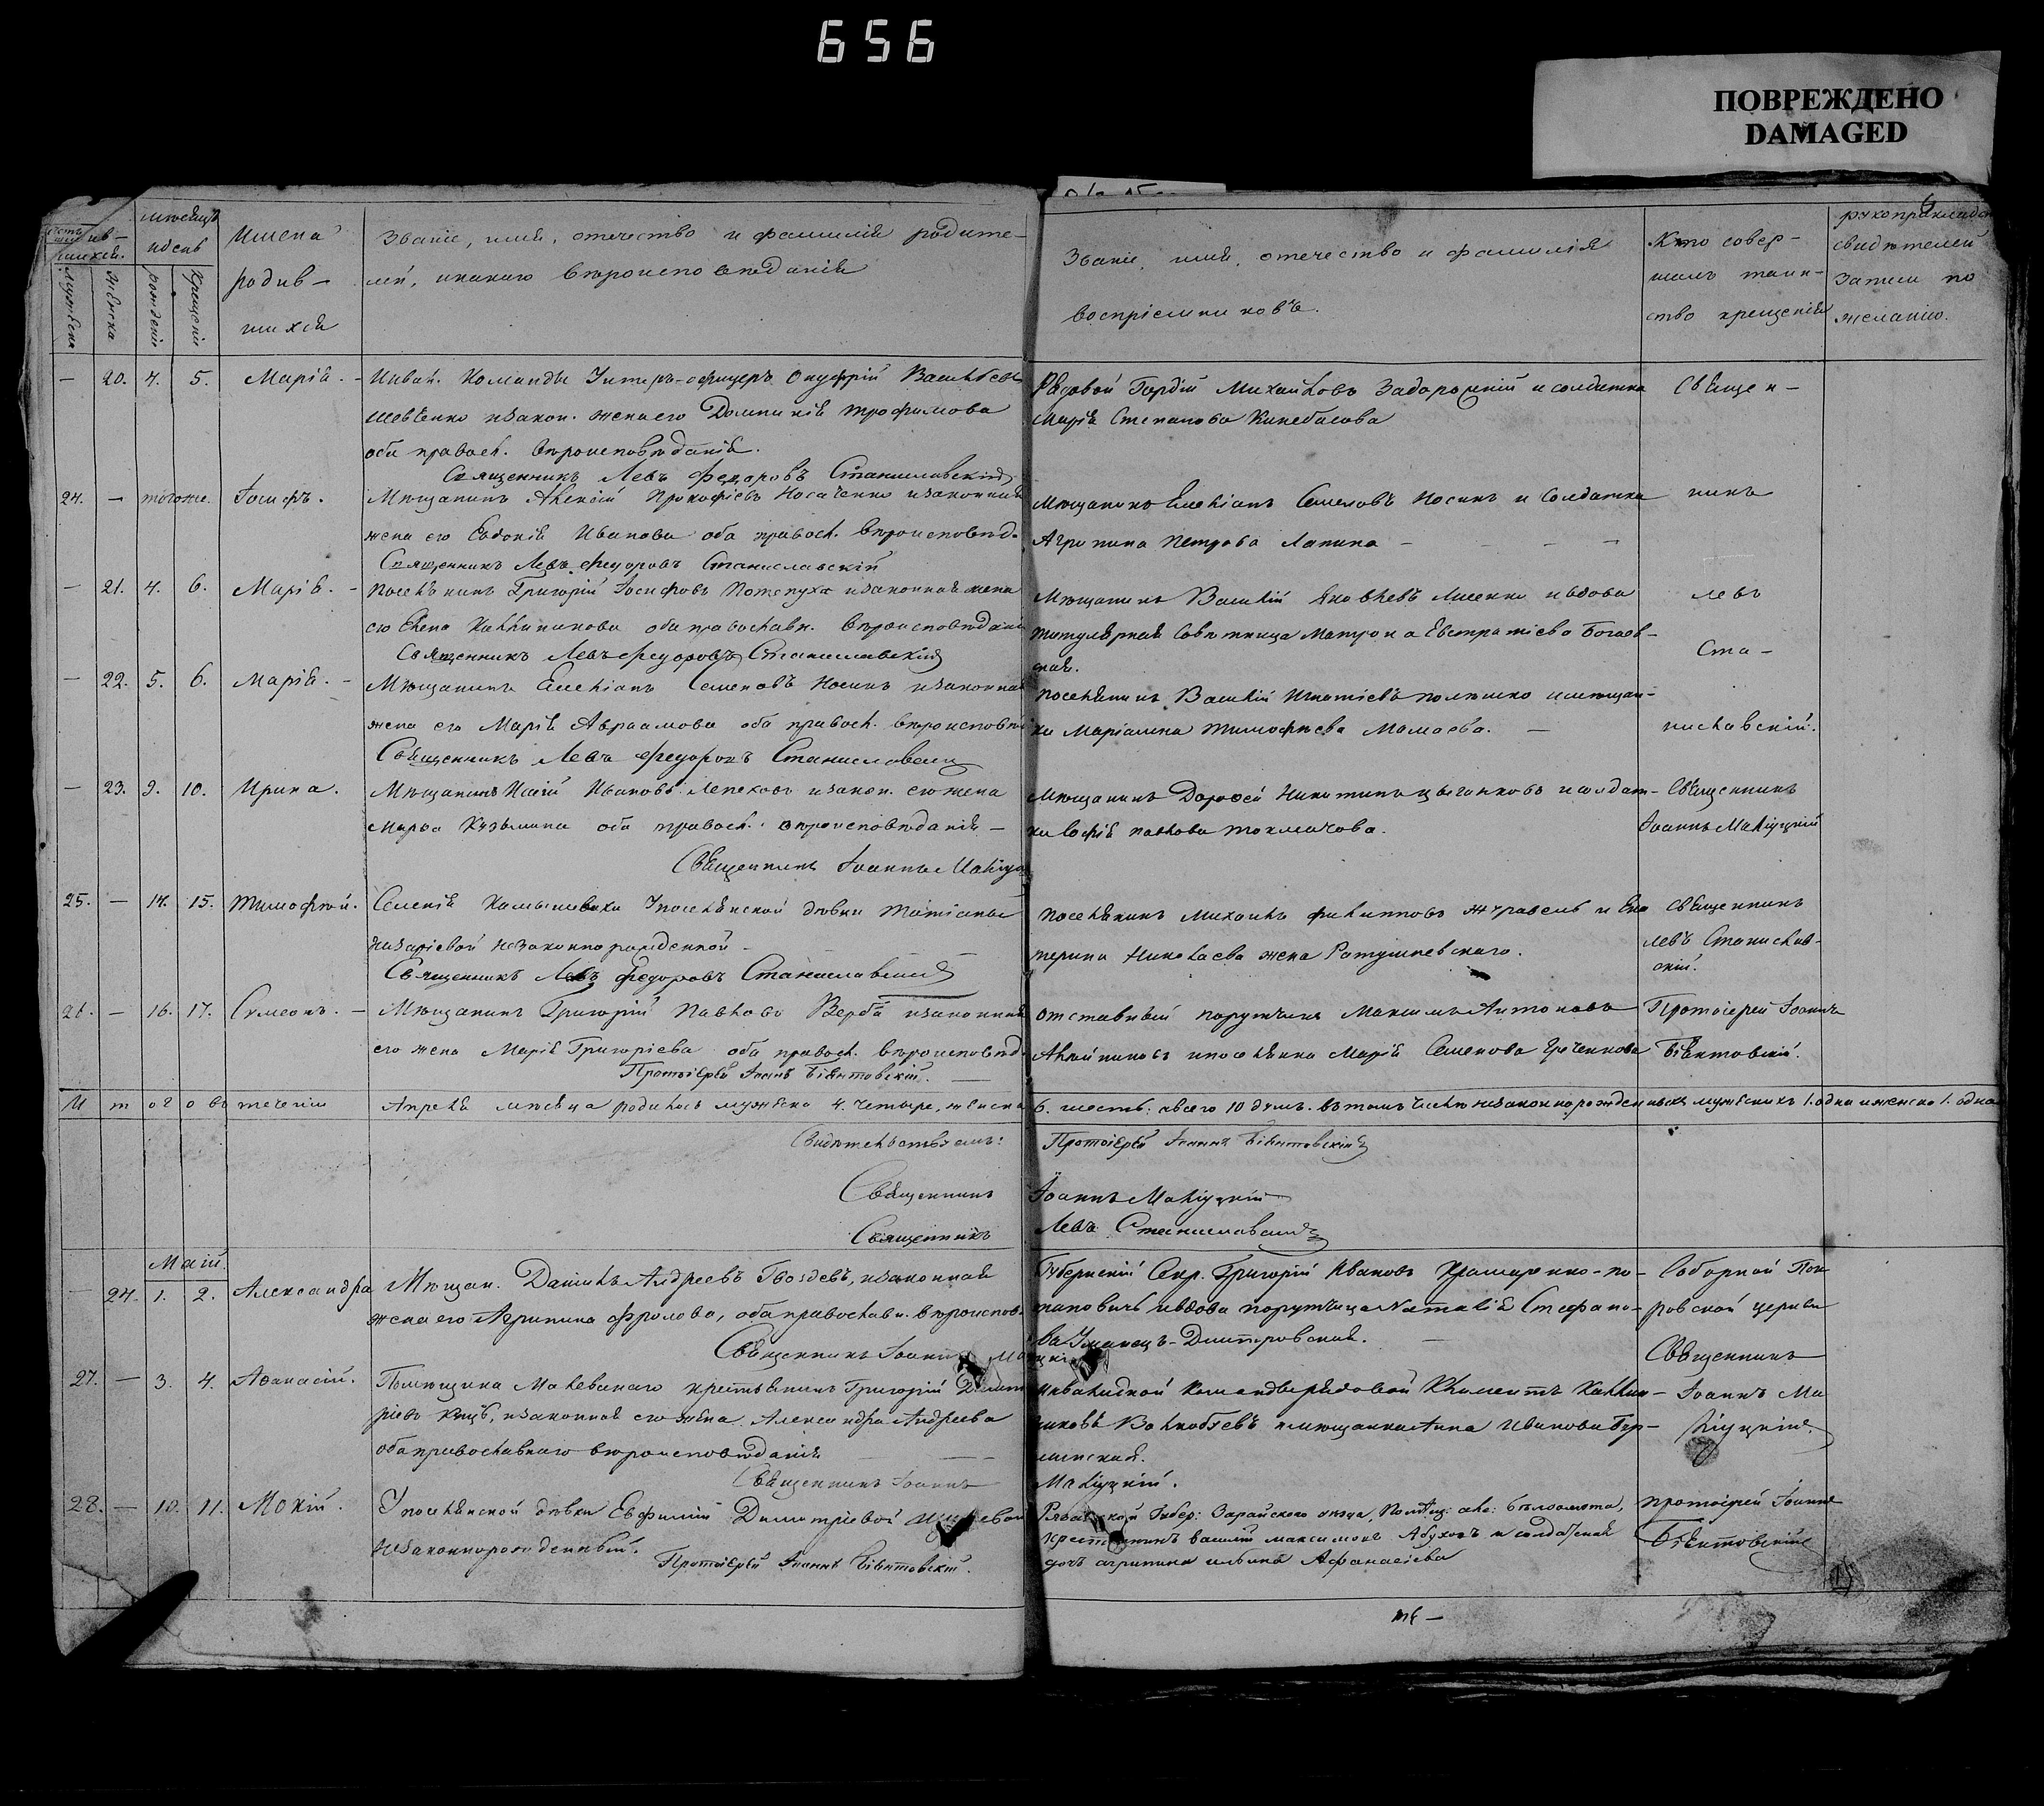 656
ПОВРЕЖДЕНО
DAMAGED
6
мѣсяцъ
и день
рожденія
крещенія
Имена
родив-
шихся
Званіе, имя, отечество и фамилія родите-
лей, и какого вѣроисповѣданія
Званіе, имя, отечество и фамилія
воспріемниковъ.
Кто совер-
шалъ таин-
ство крещенія
рукоприкладст
свидѣтелей
записи по
желанію.
— 20. 4. 5. Марія. - Инвал. Команды Унтеръ-офицеръ Онуфрій Васильевъ
Шевченко и закон. жена его Домникія Трофимова
оба правосл. вѣроисповѣданія.
Священникъ Левъ Федоровъ Станиславскій
Рядовой Гордій Михайловъ Задорожній и солдатка
Марія Степанова Кинебасова
Священ-
24. — тогоже. Іосифъ. Мѣщанинъ Алексій Прокофіевъ Носаченко и законная
жена его Евдокія Иванова оба правосл. вѣроисповѣд.
Священникъ Левъ Федоровъ Станиславскій
Мѣщанинъ Емеліанъ Семеновъ Носикъ и Солдатка
Агрипина Петрова Лапина — — — —
никъ
— 21. 4. 6. Марія. - Поселянинъ Григорій Іосифовъ Потепуха и законная жена
его Елена Каллиникова оба православн. вѣроисповѣданія
Священникъ Левъ Федоровъ Станиславскій
Мѣщанинъ Василій Яковлевъ Лисенко и вдова
титулярная Совѣтница Матрона Евстратіева Богаев-
ская.
Левъ
Ста-
— 22. 5. 6. Марія. - Мѣщанинъ Емеліанъ Семеновъ Носикъ и законная
жена его Марія Авраамова оба правосл. вѣроисповѣд
Священникъ Левъ Федоровъ Станиславскій
Поселянинъ Василій Игнатіевъ и мѣщан-
ка Маріамна Тимофѣева Мамаева. —
ниславскій.
— 23. 9. 10. Ирина. Мѣщанинъ Иванова Лепехова и закон. его жена
Марѳа Кузьмина оба правосл. вѣроисповѣданія —
Священникъ Іоаннъ
Мѣщанинъ Дороѳей Никитинъ Цыганковъ и солдат-
ка Софія Павлова Толмачова.
Священникъ
Іоаннъ
25. — 14. 15. Тимофей. Селенія Камышеваха У поселянской дѣвки Татіаны
Назаріевой незаконнорожденной —
Священникъ Левъ Федоровъ Станиславскій
Поселянинъ Михаилъ Филипповъ Журавель и Ека
терина Николаева жена Ратушневскаго.
Священникъ
Левъ Станислав-
скій.
26. — 16. 17. Сумеонъ. - Мѣщанинъ Григорій Павловъ Верба и законная
его жена Марія Григоріева оба правосл. вѣроисповѣд.
Протоіерей Іоаннъ
Отставный поручикъ Максимъ Антоновъ
и поселянка Марія Семенова Гречникова
Протоіерей Іоаннъ
Итого въ теченіи Апрѣля мѣсяца родилось мужеска 4. четыре, женска 6. шесть. а всего 10 душ. въ томъ числѣ незаконнорожденныхъ мужескихъ 1. одна и женска 1. одна
Свидѣтельствуемъ: Протоіерей Іоаннъ
Священникъ Іоаннъ
Священникъ Левъ Станиславскій
Маій.
— 24. 1. 2. Александра Мѣщан. Даніилъ Андреевъ Гвоздевъ, и законная
жена его Агрипина Фролова, оба православн. вѣроисповѣ.
Священникъ Іоаннъ
Губернскій Секр. Григорій Ивановъ Крамаренко-по-
и вдова поручица Наталія Стефано-
ва Уманецъ-Дмитровская. —
Соборной Пок
ровской церкви
Священникъ
27. — 3. 4. Аѳанасій. Помѣщика крестьянинъ Григорій Димит
ріевъ и законная его жена Александра Андреева
оба православнаго вѣроисповѣданія
Священникъ Іоаннъ
Инвалидной Команды рядовой Климентъ Каллин-
иковъ и мѣщанка Анна Иванова
Іоаннъ
28. — 10. 11. Мокій. У поселянской дѣвки Евфиміи Димитріевой
незаконнорожденный.
Протоіерей Іоаннъ
Рязанской Губер: Зарайского уѣзда,
крестьянинъ Василій Максимовъ Абуховъ и солдатская
дочь агрипина ильина Афанасіева
протоіерей Іоаннъ